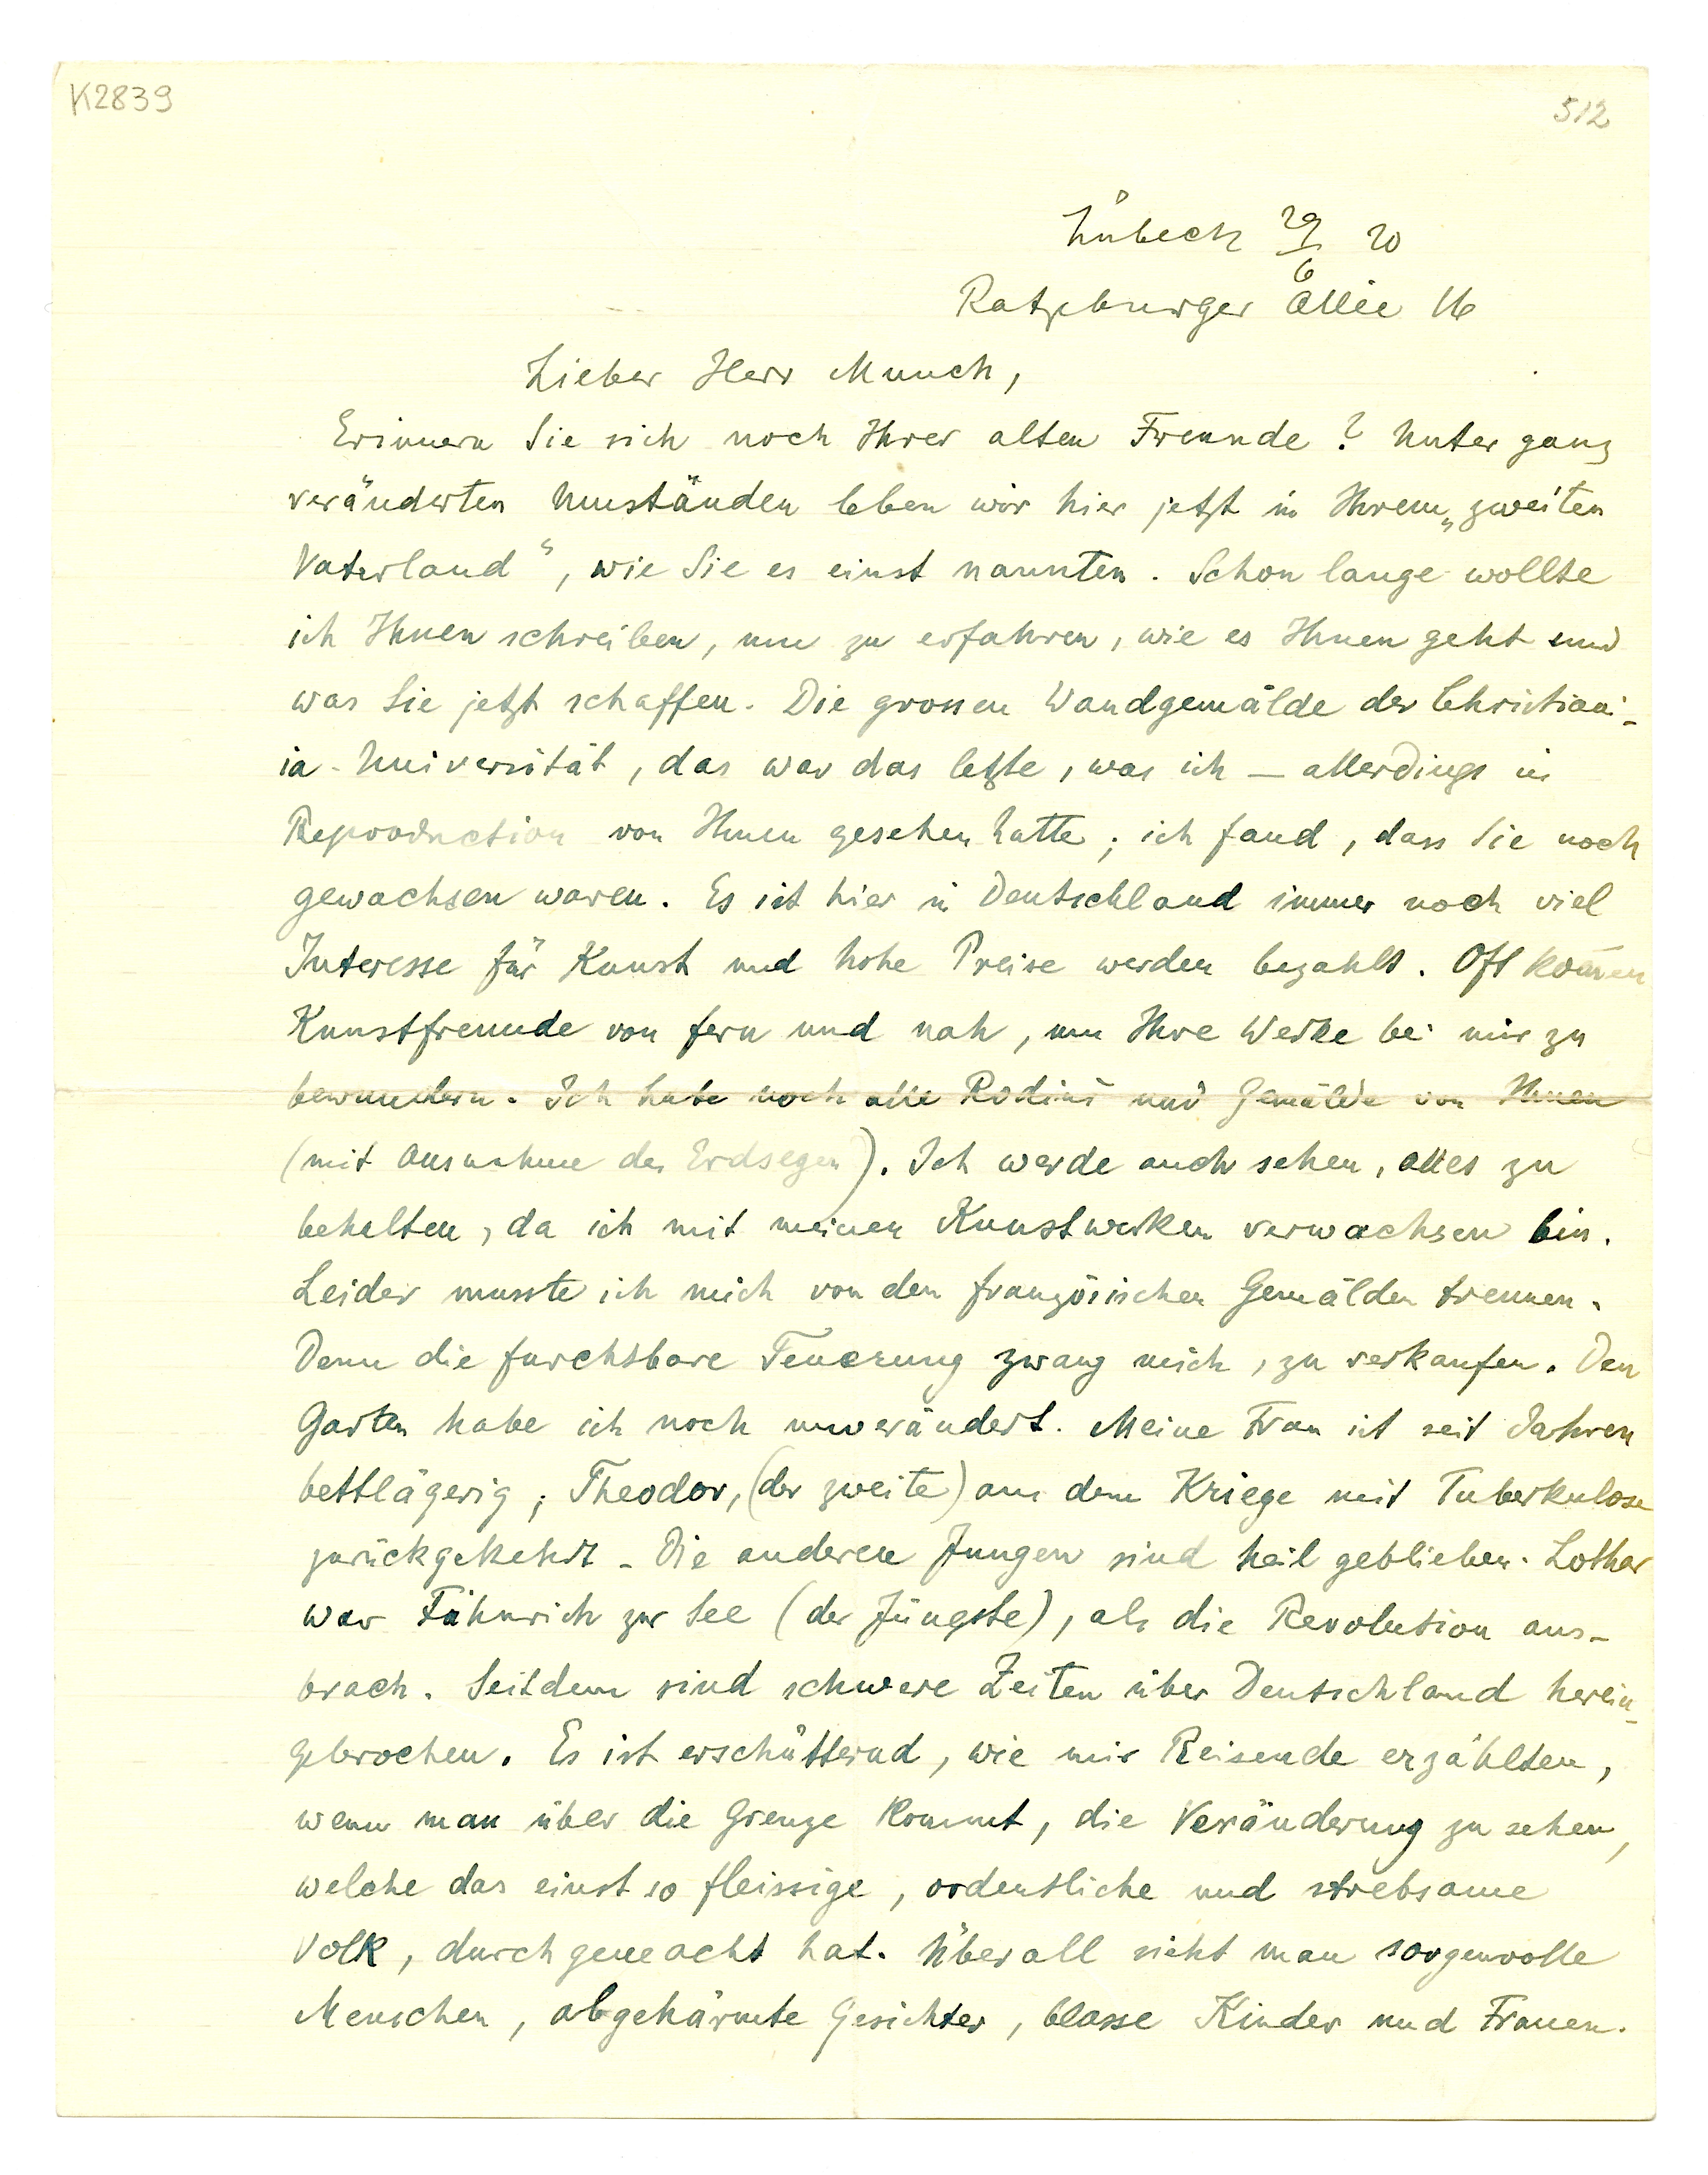 K2839
512
Lübeck 29/6 20
Ratzeburger Allee 16
Lieber Herr Munch,
Erinnern Sie sich noch Ihrer alten Freunde? Unter ganz
veränderten Umständen leben wir hier jetzt in Ihrem „zweiten
Vaterland“, wie Sie es einst nannten. Schon lange wollte
ich Ihnen schreiben, um zu erfahren, wie es Ihnen geht und
was Sie jetzt schaffen. Die grossen Wandgemälde der Christian-
ia-Universität, das war das letzte, was ich — allerdings in
Reproduction von Ihnen gesehen hatte; ich fand, dass Sie noch
gewachsen waren. Es ist hier in Deutschland immer noch viel
Interesse für Kunst und hohe Preise werden bezahlt. Oft kom̄en
Kunstfreunde von fern und nah, um Ihre Werke bei mir zu
bewundern. Ich habe noch alle Rodins und Gemälde von Ihnen
(mit Ausnahme des Erdsegen). Ich werde auch sehen, alles zu
behalten, da ich mit meinen Kunstwerken verwachsen bin.
Leider musste ich mich von den französischen Gemälden trennen.
Denn die furchtbare Teuerung zwang mich, zu verkaufen. Den
Garten habe ich noch unverändert. Meine Frau ist seit Jahren
bettlägerig; Theodor, (der zweite) aus dem Kriege mit Tuberkulose
zurückgekehrt – Die anderen Jungen sind heil geblieben. Lothar
war Fähnrich zur See (der Jüngste), als die Revolution aus-
brach. Seitdem sind schwere Zeiten über Deutschland herein-
gebrochen. Es ist erschütternd, wie mir Reisende erzählten,
wenn man über die Grenze kommt, die Veränderung zu sehen,
welche das einst so fleissige, ordentliche und strebsame
Volk, durchgemacht hat. Überall sieht man sorgenvolle
Menschen, abgehärmte Gesichter, blasse Kinder und Frauen.